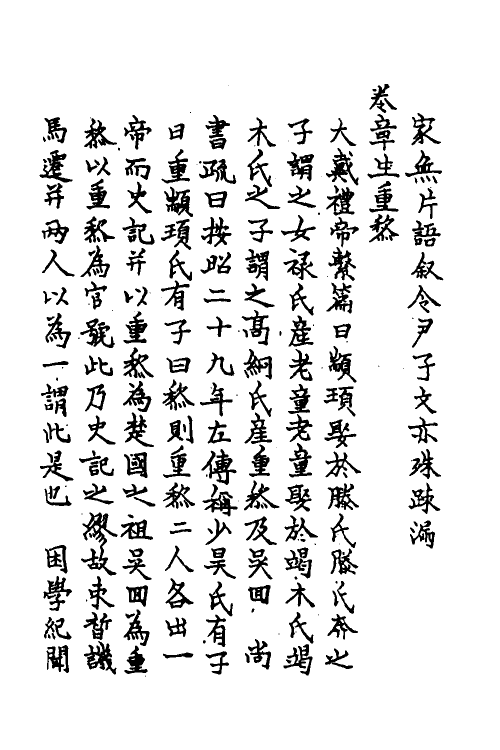 家無片語叙令尹子文亦殊踈漏
卷章生重黎
大戴禮帝繫篇曰顓頊娶於滕氏滕氏奔之
子謂之女祿氏産老童老童娶於竭木氏竭
木氏之子謂之髙緺氏産重黎及吴回　尚
書疏曰按昭二十九年左傳稱少昊氏有子
曰重顓頊氏有子曰黎則重黎二人各出一
帝而史記并以重黎為楚國之祖吴回為重
黎以重黎為官號此乃史記之繆故束晳譏
馬遷并兩人以為一謂此是也　困學紀聞